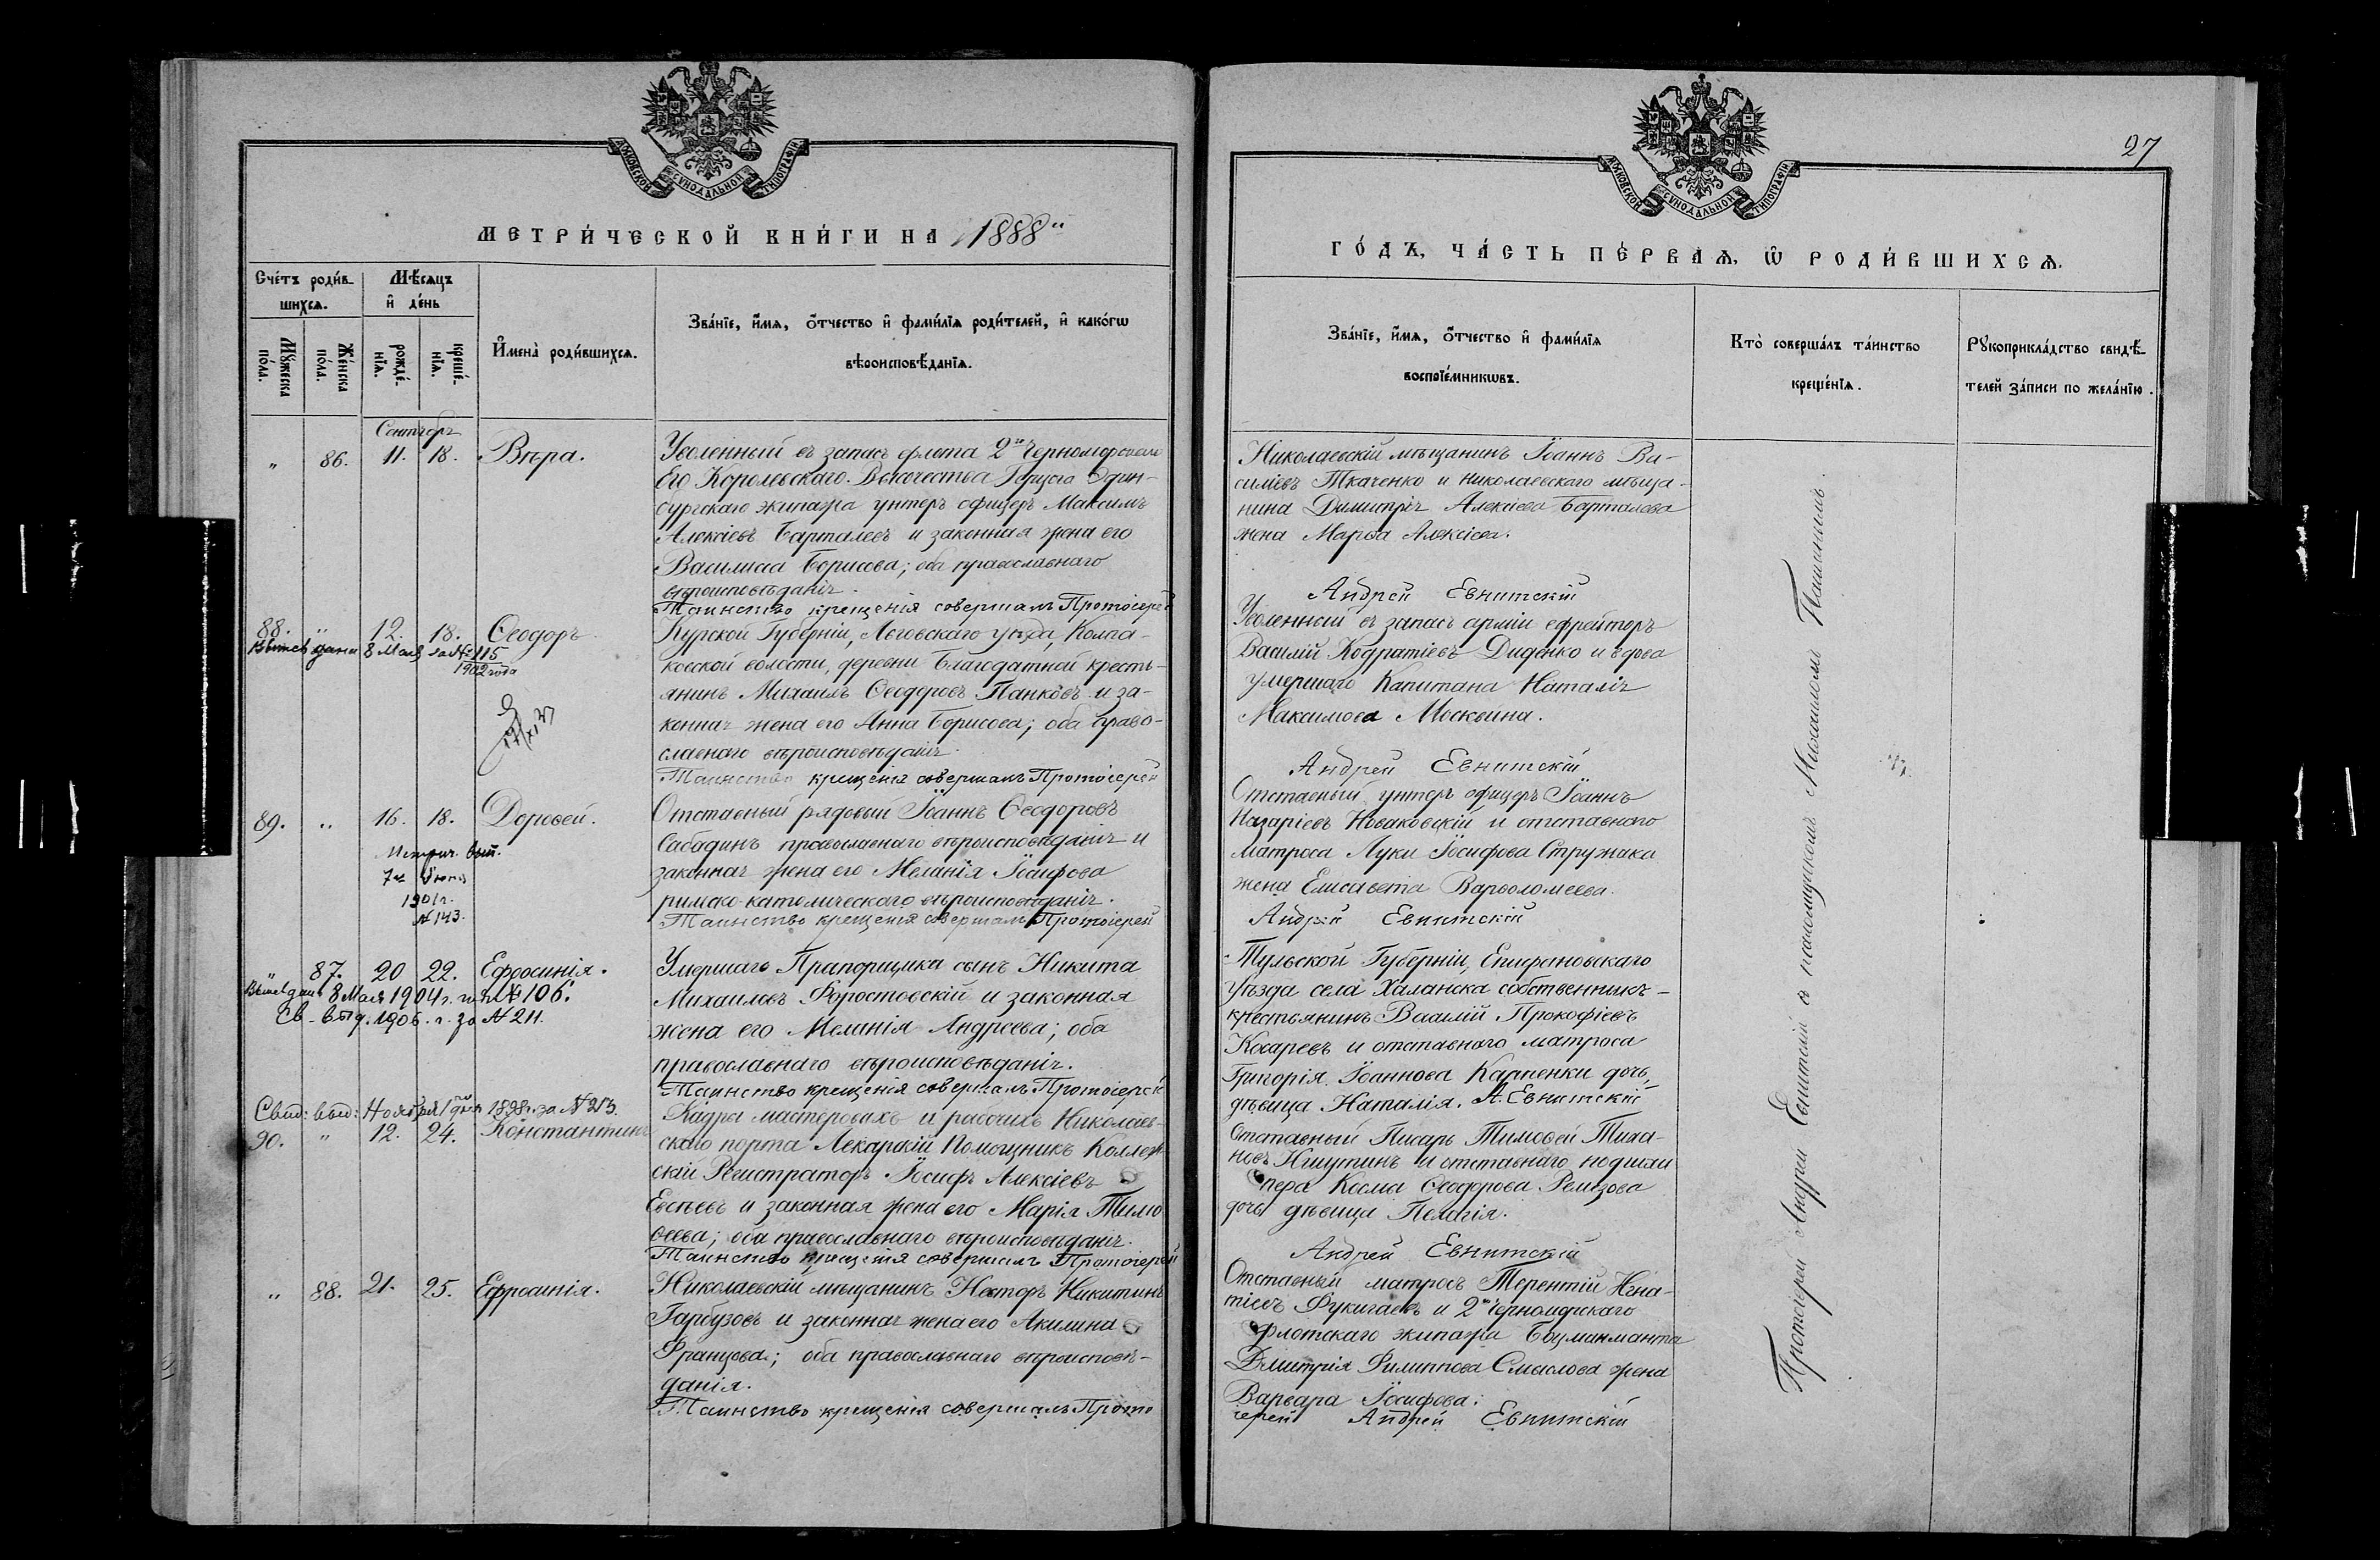 27
МОСКОВСКОЙ СУНОДАЛЬНОЙ ТИПОГРАФІИ
МЕТРИ́ЧЕСКОЙ КНИ́ГИ НА 1888
Сче́тъ роди́в-
шихсѧ.
Мꙋ́жеска
по́ла.
Же́нска
по́ла.
Мѣ́сѧцъ
и҆ де́нь
рожде́-
нїѧ.
креще́-
нїѧ.
И҆мена̀ роди́вшихсѧ.
Зва́нїе, и҆́мѧ, ѻ҆́тчество и҆ фами́лїѧ роди́телей, и҆ како́гѡ
вѣроисповѣ́данїѧ.
Сентябрь
„ 86. 11. 18. Вѣра.
Уволенный въ запасъ флота 2го Черноморскаго
Его Королевскаго Высочества Герцога Эдин-
бургскаго экипажа унтеръ офицеръ Максимъ
Алексіевъ Барталевъ и законная жена его
Василиса Борисова; оба православнаго
вѣроисповѣданія.
Таинство крещенія совершалъ Протоіерей
88. „ 12. 18. Ѳеодоръ.
дана 8 Мая за № 115
1902 года
Курской Губерніи, Льговскаго уѣзда, Колпа-
ковской волости, деревни Благодатной кресть-
янинъ Михаилъ Ѳеодоровъ Панковъ и за-
конная жена его Анна Борисова; оба право-
славнаго вѣроисповѣданія.
Таинство крещенія совершалъ Протоіерей
89. „ 16. 18. Дороѳей.
Метрич. вып.
7го Іюня
1901 г.
№ 143.
Отставный рядовый Іоаннъ Ѳеодоровъ
Сабадинъ православнаго вѣроисповѣданія и
законная жена его Меланія Іосифова
римско-католическаго вѣроисповѣданія.
Таинство крещенія совершалъ Протоіерей
„ 87. 20 22. Ефросинія.
8 Мая 1904 г. № 106.
Св. выд. 1906 г. за № 211.
Умершаго Прапорщика сынъ Никита
Михаиловъ Форостовскій и законная
жена его Меланія Андреева; оба
православнаго вѣроисповѣданія.
Таинство крещенія совершалъ Протоіерей
Свид: выд: Ноября 1 дня 1898 г. за № 213.
90. „ 12. 24. Константинъ
Кадры мастеровыхъ и рабочихъ Николаев-
скаго порта Лекарскій Помощникъ Коллеж-
скій Регистраторъ Іосифъ Алексіевъ
Евсѣевъ и законная жена его Марія Тимо
ѳеева; оба православнаго вѣроисповѣданія.
Таинство крещенія совершалъ Протоіерей
„ 88. 21. 25. Ефросинія.
Николаевскій мѣщанинъ Несторъ Никитинъ
Гарбузовъ и законная жена его Акилина
Францова; оба православнаго вѣроисповѣ-
данія.
Таинство крещенія совершалъ Прото
МОСКОВСКОЙ СУНОДАЛЬНОЙ ТИПОГРАФІИ
ГО́ДЪ, ЧА́СТЬ ПЕ́РВАѦ, Ѡ҆ РОДИ́ВШИХСѦ.
Зва́нїе, и҆́мѧ, ѻ҆́тчество и҆ фами́лїѧ
воспрїе́мникѡвъ.
Кто̀ соверша́лъ та́инство
креще́нїѧ.
Рꙋкоприкла́дство свидѣ́-
телей за́писи по жела́нїю.
Николаевскій мѣщанинъ Іоаннъ Ва-
силіевъ Ткаченко и Николаевскаго мѣща-
нина Димитрія Алексіева Барталева
жена Марѳа Алексіева.
Андрей Евнитскій
Уволенный въ запасъ арміи ефрейторъ
Василій Кодратіевъ Диденко и вдова
умершаго Капитана Наталія
Максимова Москвина.
Андрей Евнитскій
Отставный унтеръ офицеръ Іоаннъ
Назаріевъ Новаковскій и отставнаго
матроса Луки Іосифова Стружака
жена Елисавета Варѳоломеева.
Андрей Евнитскій
Тульской Губерніи, Епифановскаго
уѣзда села собственникъ-
крестьянинъ Василій Прокофіевъ
Косаревъ и отставнаго матроса
Григорія Іоаннова Карпенки дочь,
дѣвица Наталія. А. Евнитскій
Отставный Писарь Тимоѳей
и отставнаго подшки
пера Косма Ѳеодорова Ремизова
дочь дѣвица Пелагія.
Андрей Евнитскій
Отставный матросъ Терентій Игна-
тіевъ и 2го Черноморскаго
флотскаго экипажа
Димитрія Филиппова Смыслова жена
Варвара Іосифова.
іерей Андрей Евнитскій
Протоіерей Андрей Евнитскій съ псаломщикомъ Михаиломъ